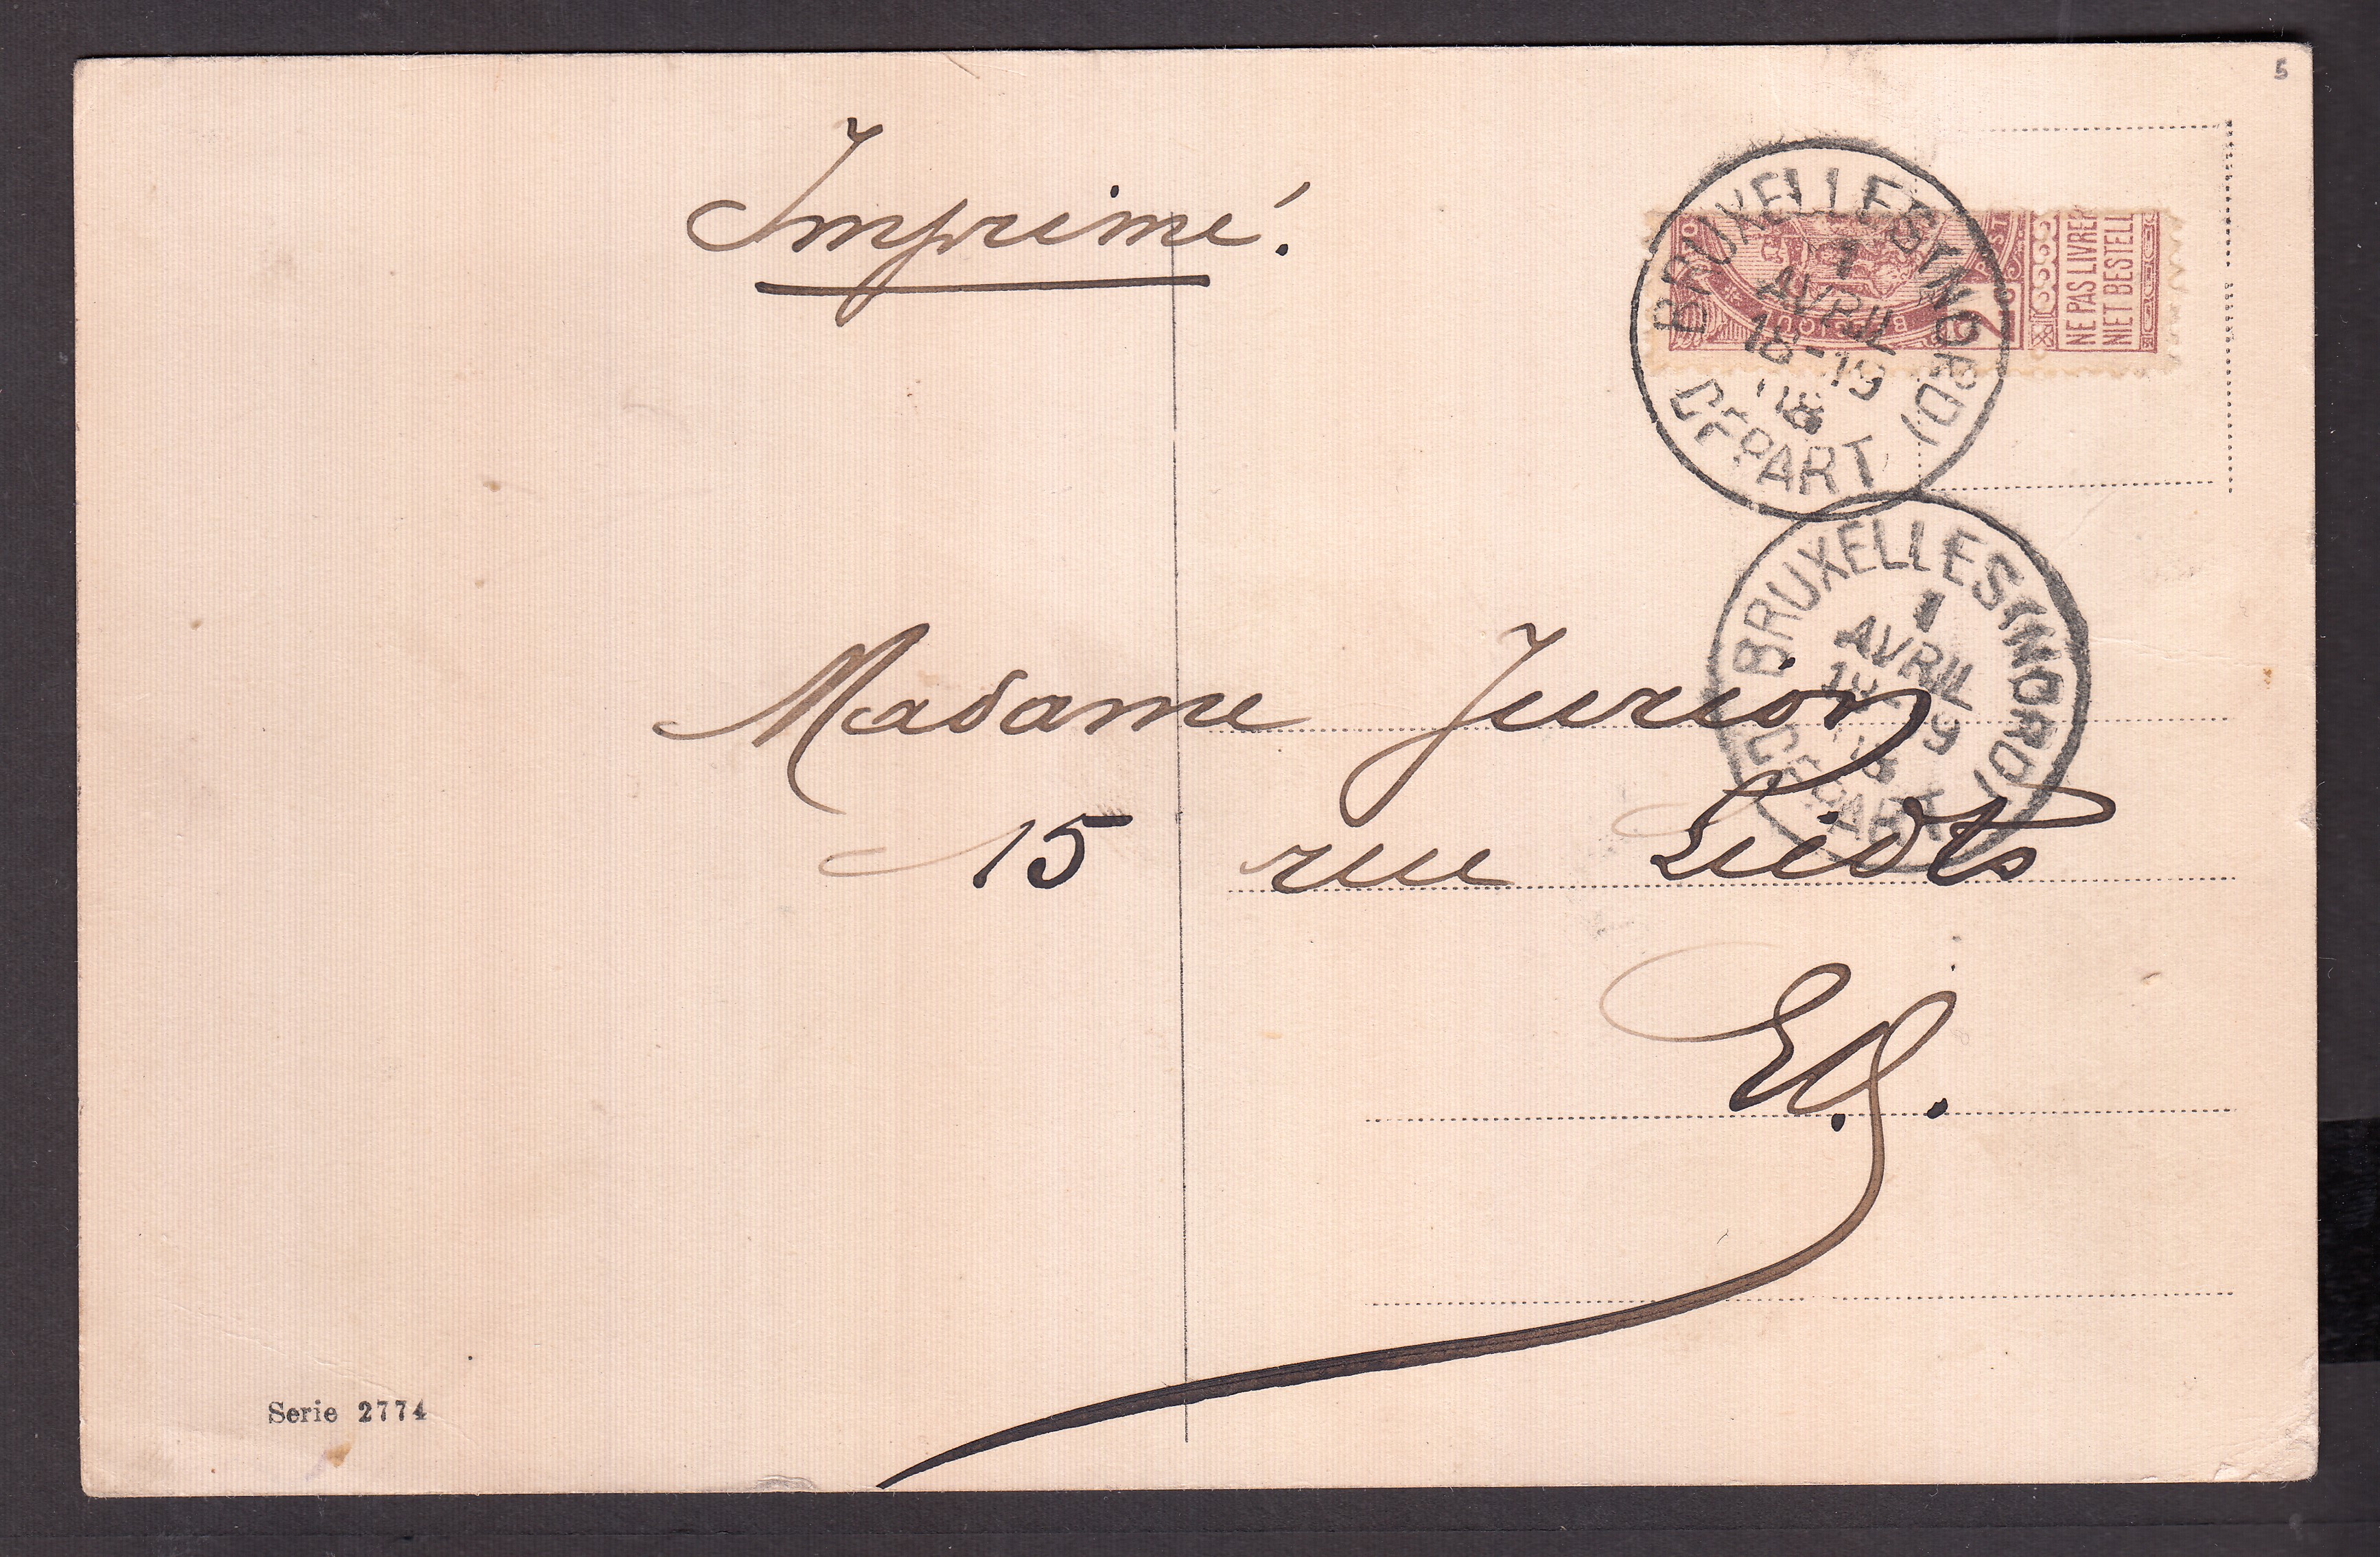 5
Imprimé.
BRUXELLES (NORD)
1
AVRIL
18-19
DÉPART
NE PAS LIVRER
NIET BESTELL
BRUXELLES (NORD)
1
AVRIL
DÉPART
Madame Jurion
15 rue Liedts
E.V.
Serie 2774